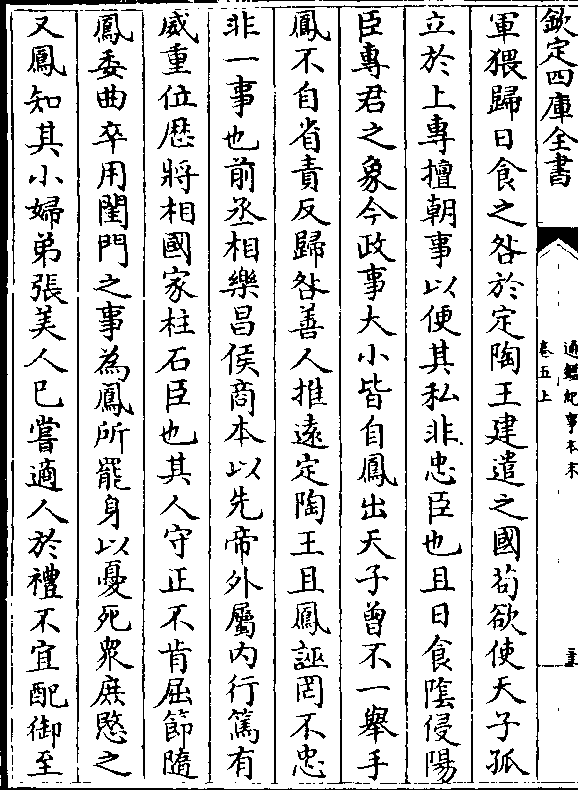 欽定四庫全書
通鑑紀事本末
卷五上
軍猥歸日食之咎於定陶王建遣之國茍欲使天子孤
立於上專擅朝事以便其私非忠臣也且日食隂侵陽
臣專君之象今政事大小皆自鳳出天子曾不一舉手
鳳不自省責反歸咎善人推遠定陶王且鳳誣罔不忠
非一事也前丞相樂昌侯商本以先帝外屬内行篤有
威重位歴將相國家柱石臣也其人守正不肯屈節隨
鳳委曲卒用閨門之事為鳳所罷身以憂死衆庶愍之
又鳳知其小婦弟張美人已嘗適人於禮不宜配御至